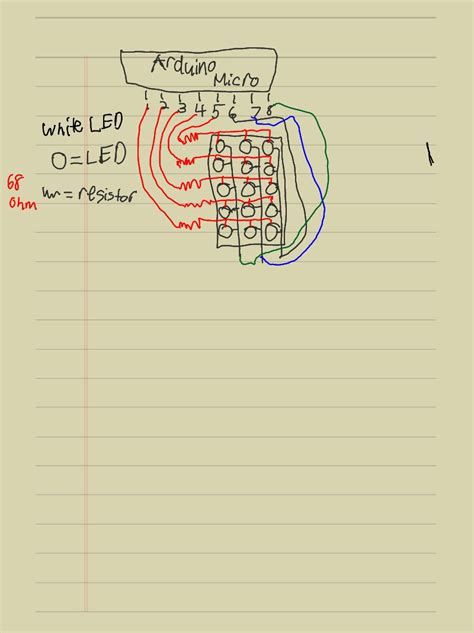 Arduino
Micro
1 2 3 4 5 6 7 8
white LED
O=LED
68
ohm
= resistor